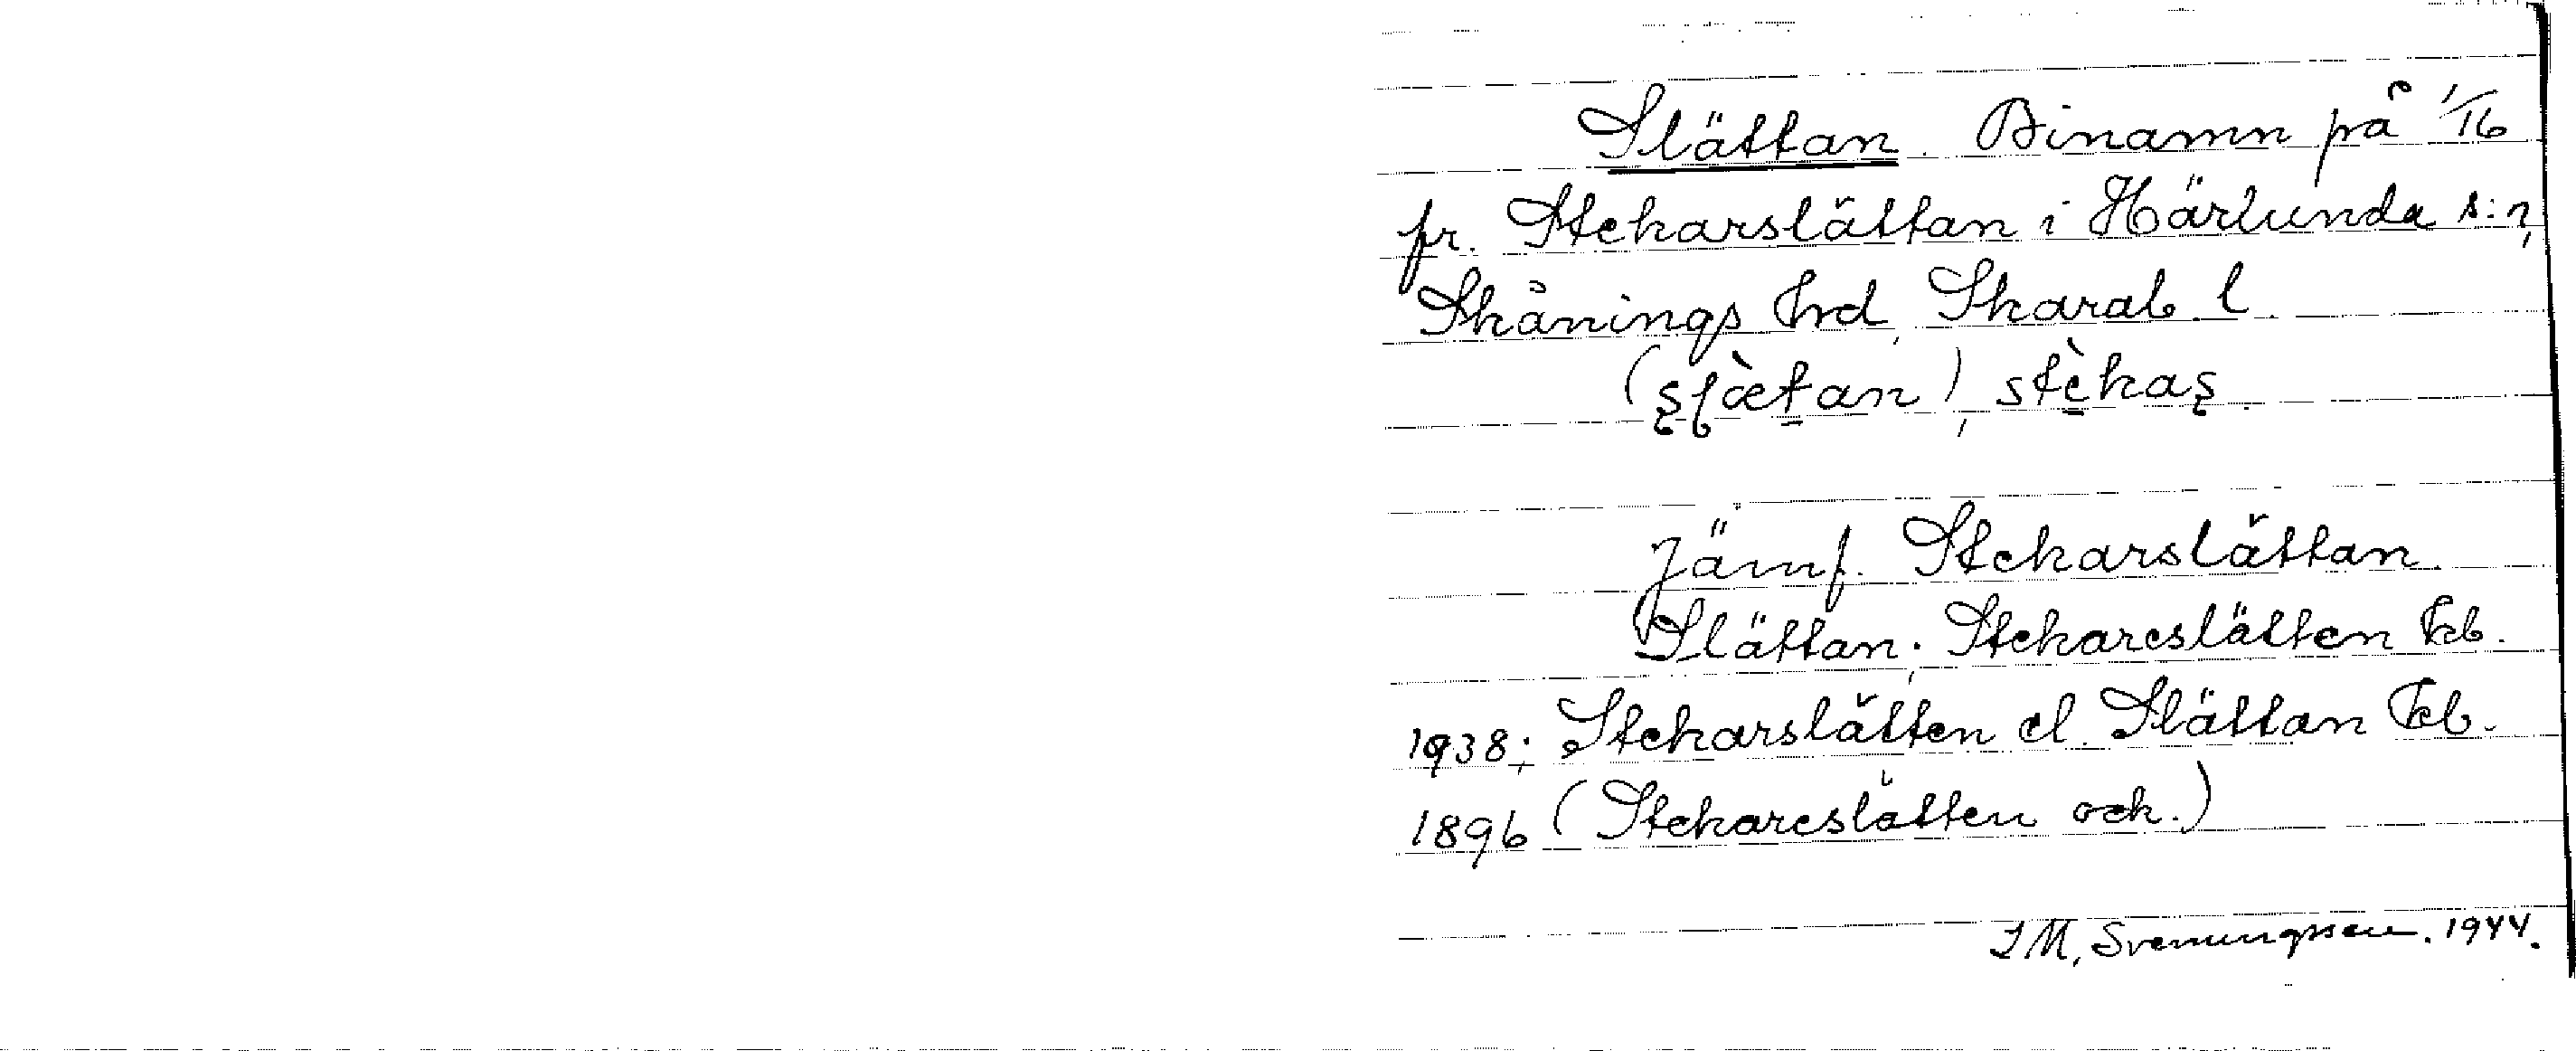 Slättan. Binamn på 1/16
fr. Stekarslättan i Härlunda s:n,
Skånings hrd, Skarab. l.
(ṣḷæ̀tan), stèkaṣ.
Jämf. Stekarslättan.
Slättan; Stekareslätten kb.
1938; Stekarslätten el. Slättan kb.
1896 (Stekareslätten ock.)
I M, Svenungsson. 1944.